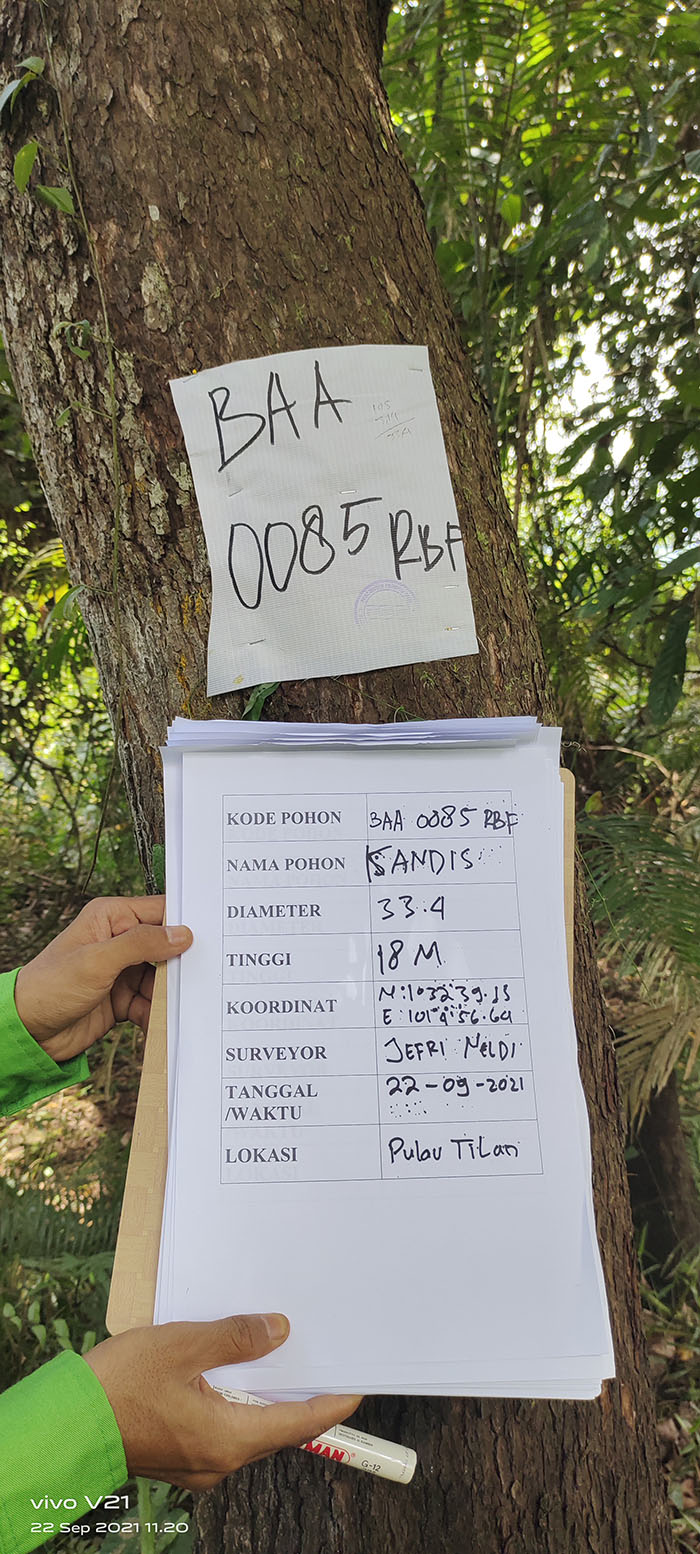 BAA
0085 RBF
KODE POHON BAA 0085 RBF
NAMA POHON KANDIS
DIAMETER 33.4
TINGGI 18 M
KOORDINAT
SURVEYOR JEFRI MELDI
TANGGAL 22-09-2021
/WAKTU
LOKASI Pulau Tilan
MAN
G-12
vivo V21
22 Sep 2021 11.20